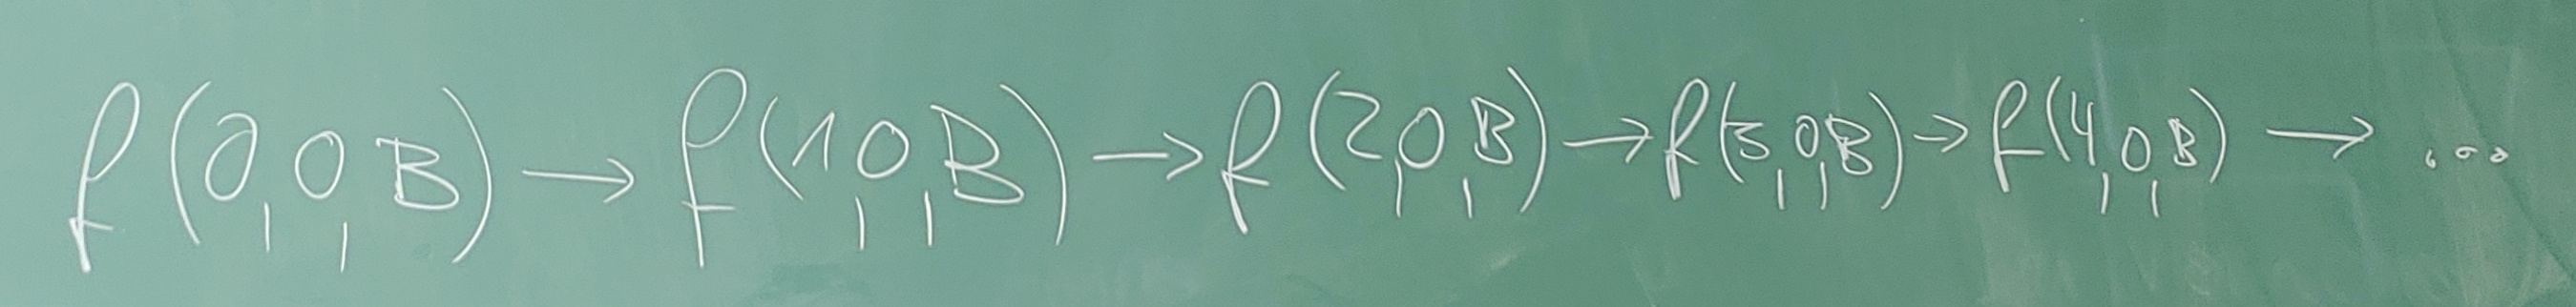 f(0,0,B) → f(1,0,B) → f(2,0,B) → f(3,0,B) → f(4,0,B) → ...